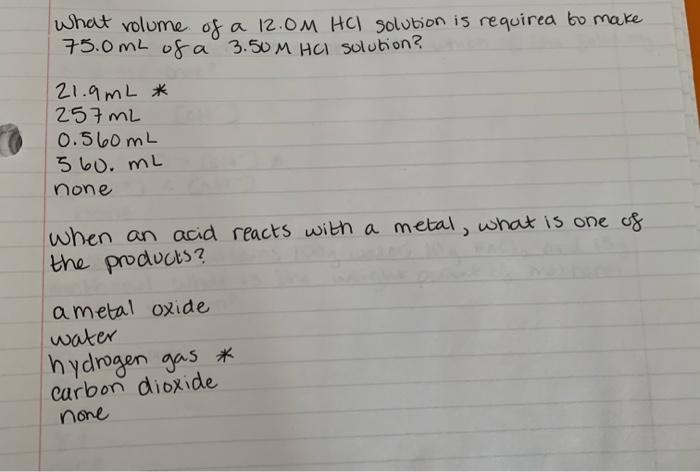 What volume of a 12.0M HCl solution is required to make
75.0mL of a 3.50M HCl solution?
21.9mL *
257mL
0.560mL
560. mL
none
When an acid reacts with a metal, what is one of
the products?
a metal oxide
water
hydrogen gas *
carbon dioxide
none